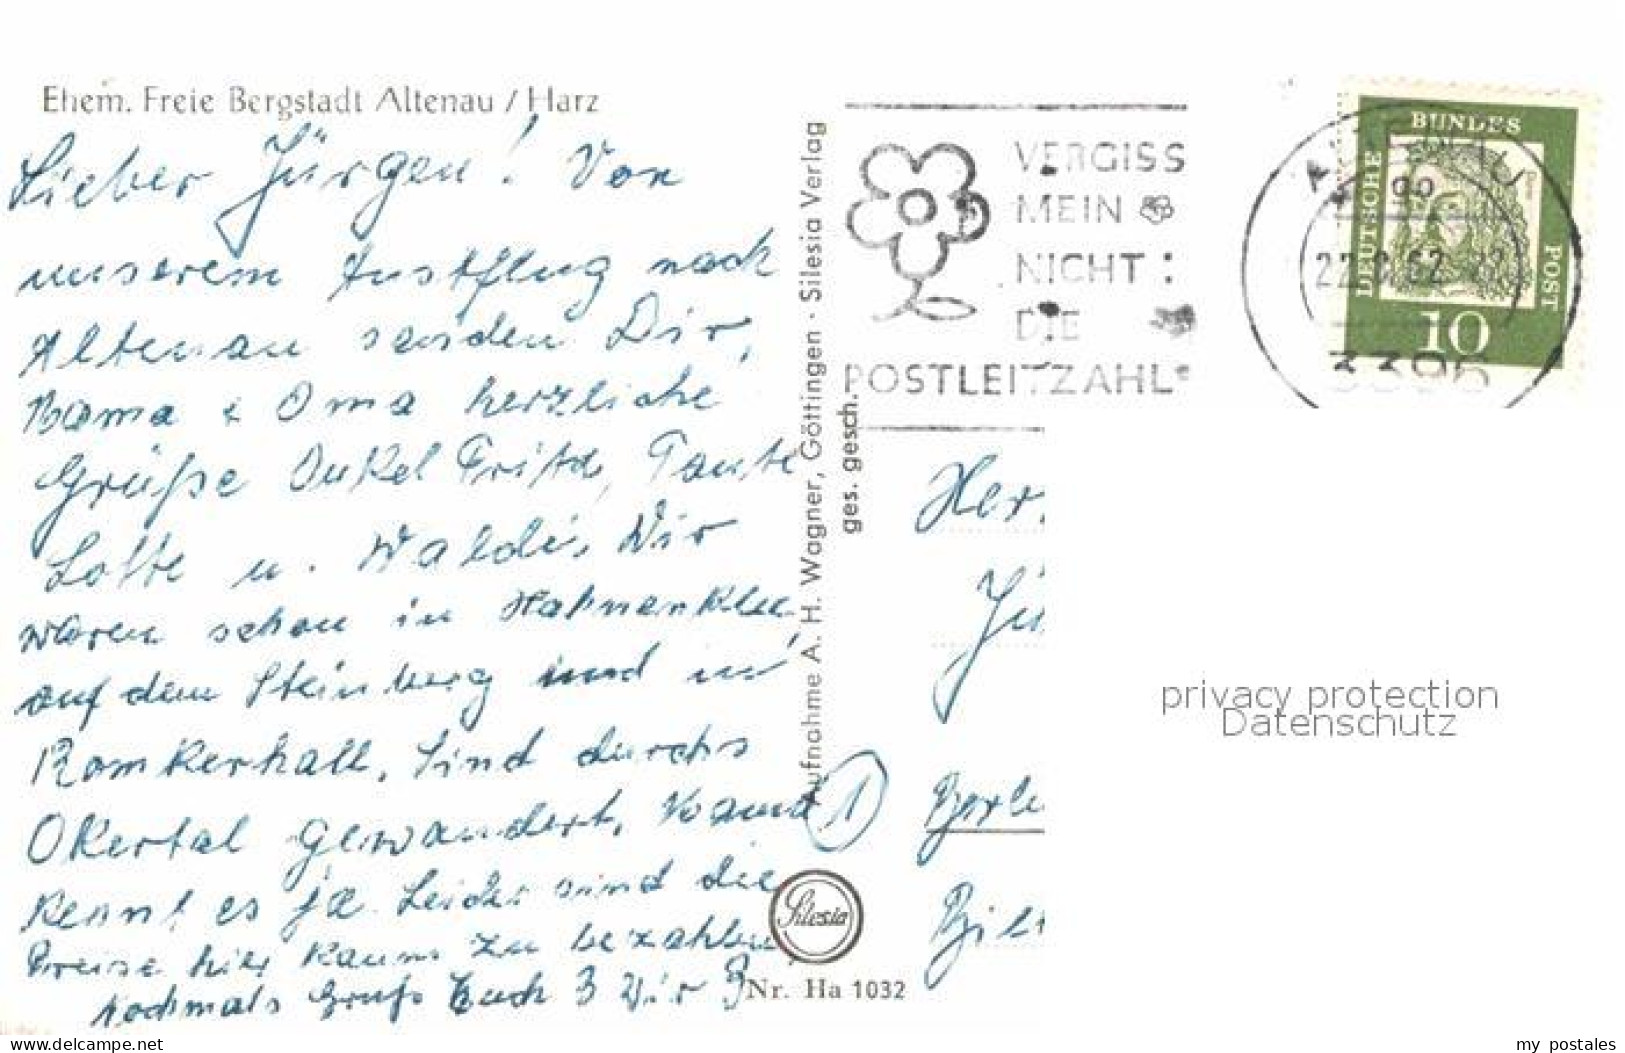 Ehem. Freie Bergstadt Altenau / Harz
Lieber Jürgen! Von
unserem Ausflug nach
Altenau senden Dir,
Mama & Oma herzliche
Grüße Onkel Fritz, Tante
Lotte u. Waldi. Wir
waren schon in Hahnenklee,
auf dem Steinberg und in
Romkerhall. Sind durchs
Okertal gewandert. Mama
kennt es ja. Leider sind die
Preise hier kaum zu bezahlen
Nochmals Gruß Euch 3 Wir 3
Aufnahme A. H. Wagner, Göttingen · Silesia Verlag
ges. gesch.
Silesia
Nr. Ha 1032
VERGISS
MEIN
NICHT:
DIE
POSTLEITZAHL
DEUTSCHE
BUNDES
POST
10
3396
Herr
Jü
Berli
1
privacy protection
Datenschutz
www.delcampe.net
my_postales